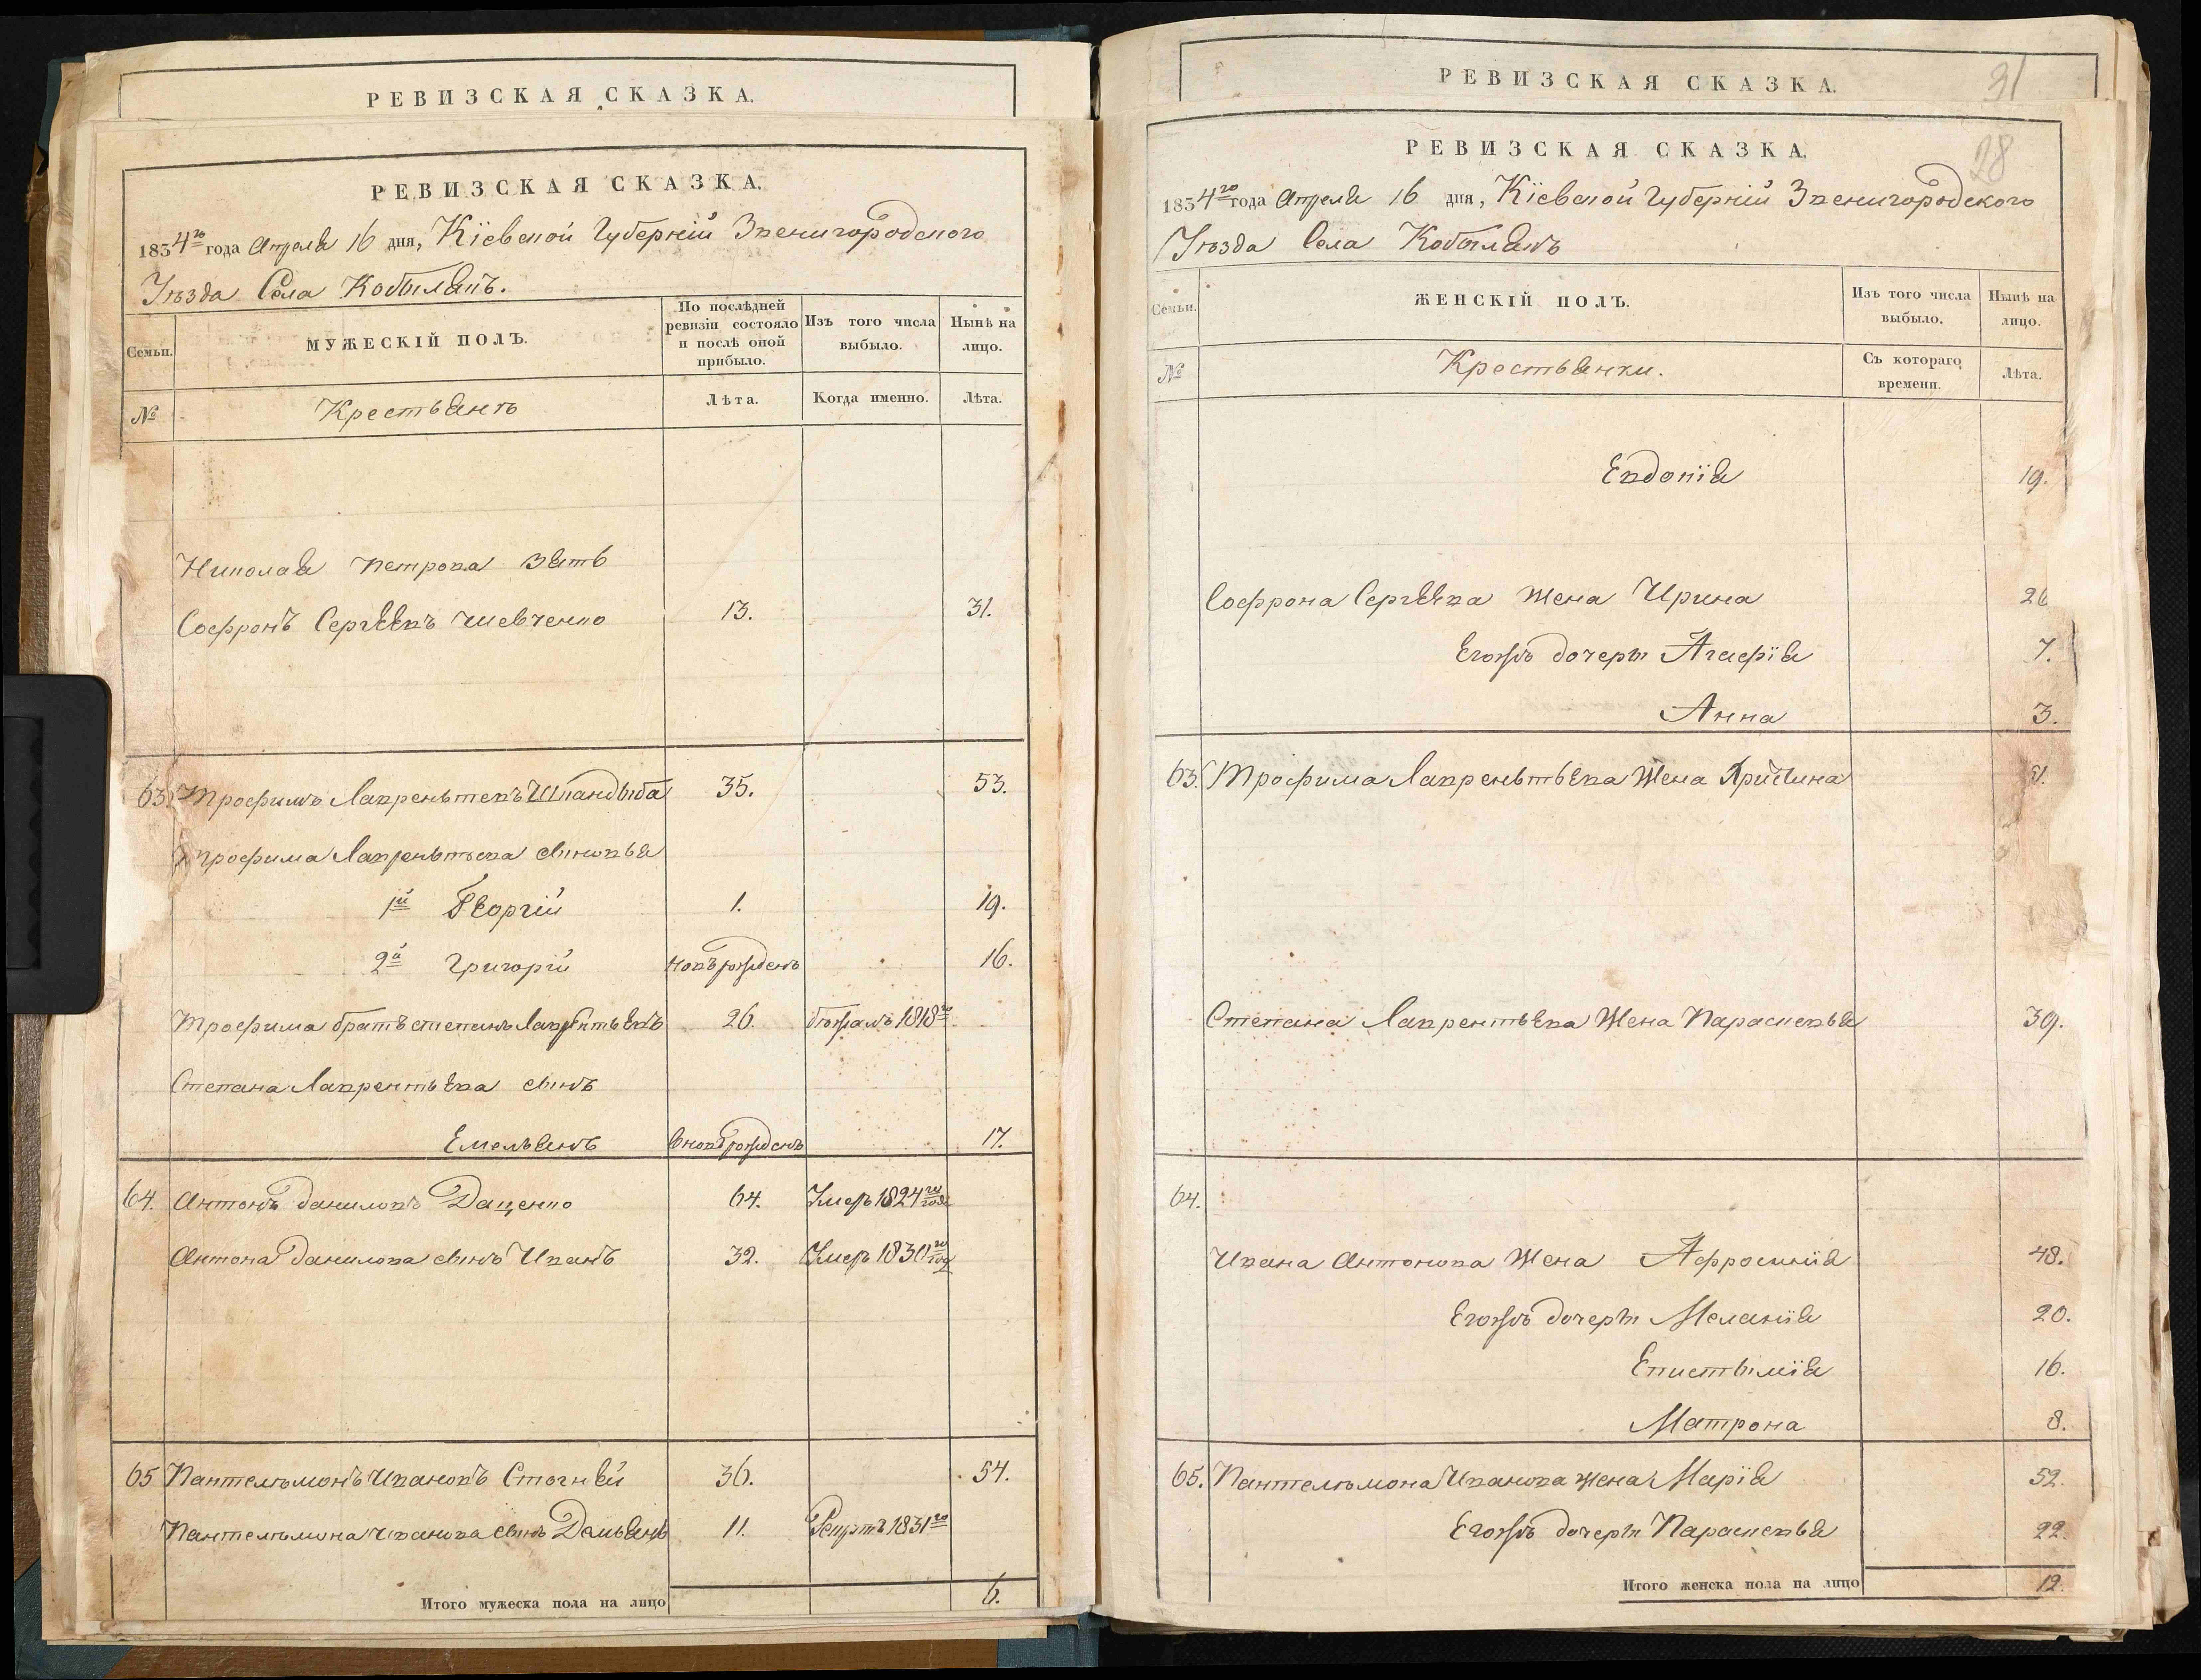 РЕВИЗСКАЯ СКАЗКА.
РЕВИЗСКАЯ СКАЗКА.
1834го года Апреля 16 дня, Кіевской Губерніи Звенигородского
Уѣзда Села Кобылякъ.
Семьи.
МУЖЕСКІЙ ПОЛЪ.
По послѣдней ревизіи состояло и послѣ оной прибыло.
Изъ того числа выбыло.
Нынѣ на лицо.
№
Крестьянъ
Лѣта.
Когда именно.
Лѣта.
Николая Петрова зять
Софронъ Сергѣевъ Шевченко 13. 31.
63. Трофимъ Лаврентьевъ Шпандыба 35. 53.
Трофима Лаврентьева сыновья
1й Георгій 1. 19.
2й Григорій новърожденъ 16.
Трофима братъ степанъ Лаврентьевъ 26. бѣжалъ 1818го
Степана Лаврентьева сынъ
Емельянъ вновърожденъ 17.
64. Антонъ Даниловъ Даценко 64. Умеръ 1824го года
Антона Данилова сынъ Иванъ 32. Умеръ 1830го года
65 Пантелѣмонъ Ивановъ Стогней 36. 54.
Пантелѣмона Иванова сынъ Демьянъ 11. Рекрутъ 1831го
Итого мужеска пола на лицо 6.
РЕВИЗСКАЯ СКАЗКА.
31
РЕВИЗСКАЯ СКАЗКА.
28
1834го года Апреля 16 дня, Кіевской Губерніи Звенигородского
Уѣзда Села Кобылякъ
Семьи.
ЖЕНСКІЙ ПОЛЪ.
Изъ того числа выбыло.
Нынѣ на лицо.
№
Крестьянки.
Съ котораго времени.
Лѣта.
Евдокія 19.
Софрона Сергѣева жена Ирина 26
Егожъ дочеры Агафія 7.
Анна 3.
63. Трофима Лаврентьева жена Христина 51.
Степана Лаврентьева жена Парасковья 39.
64.
Ивана Антонова жена Афросинія 48.
Егожъ дочеры Меланія 20.
Епистымія 16.
Матрона 8.
65. Пантелѣмона Иванова жена Марія 52.
Егожъ дочеры Парасковья 22.
Итого женска пола на лицо 12.